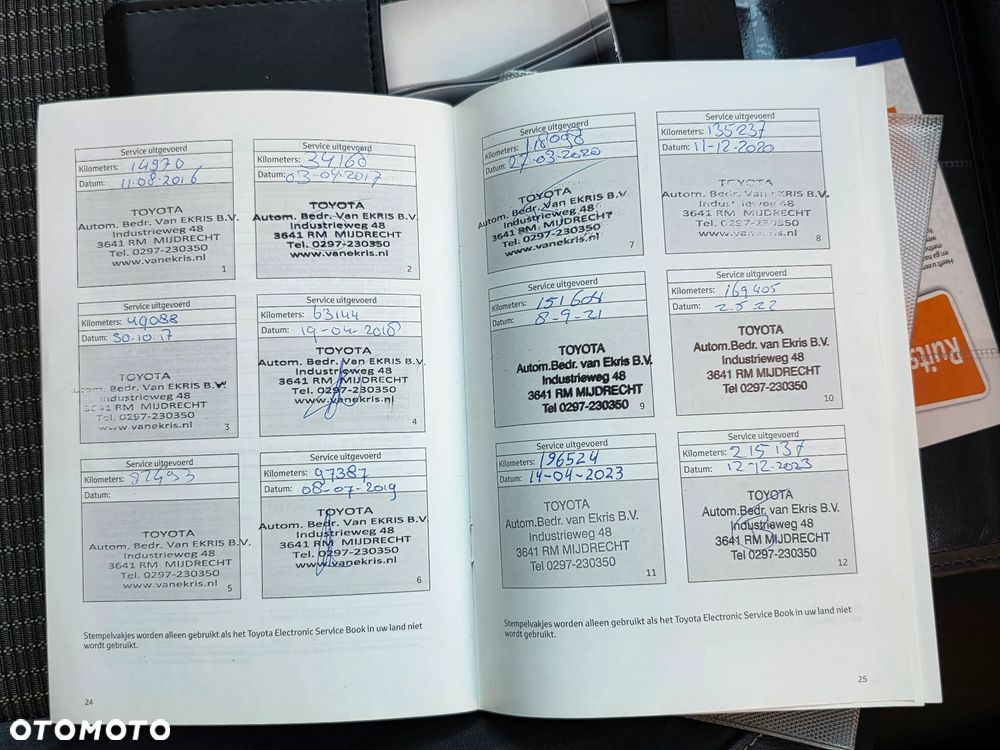 Service uitgevoerd
Kilometers: 14970
Datum: 11.08.2016
TOYOTA
Autom. Bedr. Van EKRIS B.V.
Industrieweg 48
3641 RM MIJDRECHT
Tel. 0297-230350
www.vanekris.nl
1
Service uitgevoerd
Kilometers: 34168
Datum: 03-04-2017
TOYOTA
Autom. Bedr. Van EKRIS B.V.
Industrieweg 48
3641 RM MIJDRECHT
Tel. 0297-230350
www.vanekris.nl
2
Service uitgevoerd
Kilometers: 49088
Datum: 30.10.17
TOYOTA
Autom. Bedr. Van EKRIS B.V.
Industrieweg 48
3641 RM MIJDRECHT
Tel. 0297-230350
www.vanekris.nl
3
Service uitgevoerd
Kilometers: 63144
Datum: 19-04-2018
TOYOTA
Autom. Bedr. Van EKRIS B.V.
Industrieweg 48
3641 RM MIJDRECHT
Tel. 0297-230350
www.vanekris.nl
4
Service uitgevoerd
Kilometers: 82493
Datum:
TOYOTA
Autom. Bedr. Van EKRIS B.V.
Industrieweg 48
3641 RM MIJDRECHT
Tel. 0297-230350
www.vanekris.nl
5
Service uitgevoerd
Kilometers: 97387
Datum: 08-07-2019
TOYOTA
Autom. Bedr. Van EKRIS B.V.
Industrieweg 48
3641 RM MIJDRECHT
Tel. 0297-230350
www.vanekris.nl
6
Stempelvakjes worden alleen gebruikt als het Toyota Electronic Service Book in uw land niet
wordt gebruikt.
24
Service uitgevoerd
Kilometers: 118098
Datum: 27-03-2020
TOYOTA
Autom. Bedr. Van EKRIS B.V.
Industrieweg 48
3641 RM MIJDRECHT
Tel. 0297-230350
www.vanekris.nl
7
Service uitgevoerd
Kilometers: 135237
Datum: 11-12-2020
TOYOTA
Autom. Bedr. Van EKRIS B.V.
Industrieweg 48
3641 RM MIJDRECHT
Tel. 0297-230350
www.vanekris.nl
8
Service uitgevoerd
Kilometers: 151604
Datum: 8-9-21
TOYOTA
Autom.Bedr. van Ekris B.V.
Industrieweg 48
3641 RM MIJDRECHT
Tel 0297-230350
9
Service uitgevoerd
Kilometers: 169405
Datum: 2.5.22
TOYOTA
Autom.Bedr. van Ekris B.V.
Industrieweg 48
3641 RM MIJDRECHT
Tel 0297-230350
10
Service uitgevoerd
Kilometers: 196524
Datum: 14-04-2023
TOYOTA
Autom.Bedr. van Ekris B.V.
Industrieweg 48
3641 RM MIJDRECHT
Tel 0297-230350
11
Service uitgevoerd
Kilometers: 215137
Datum: 12-12-2023
TOYOTA
Autom.Bedr. van Ekris B.V.
Industrieweg 48
3641 RM MIJDRECHT
Tel 0297-230350
12
Stempelvakjes worden alleen gebruikt als het Toyota Electronic Service Book in uw land niet
wordt gebruikt.
25
Heeft u een
OTOMOTO